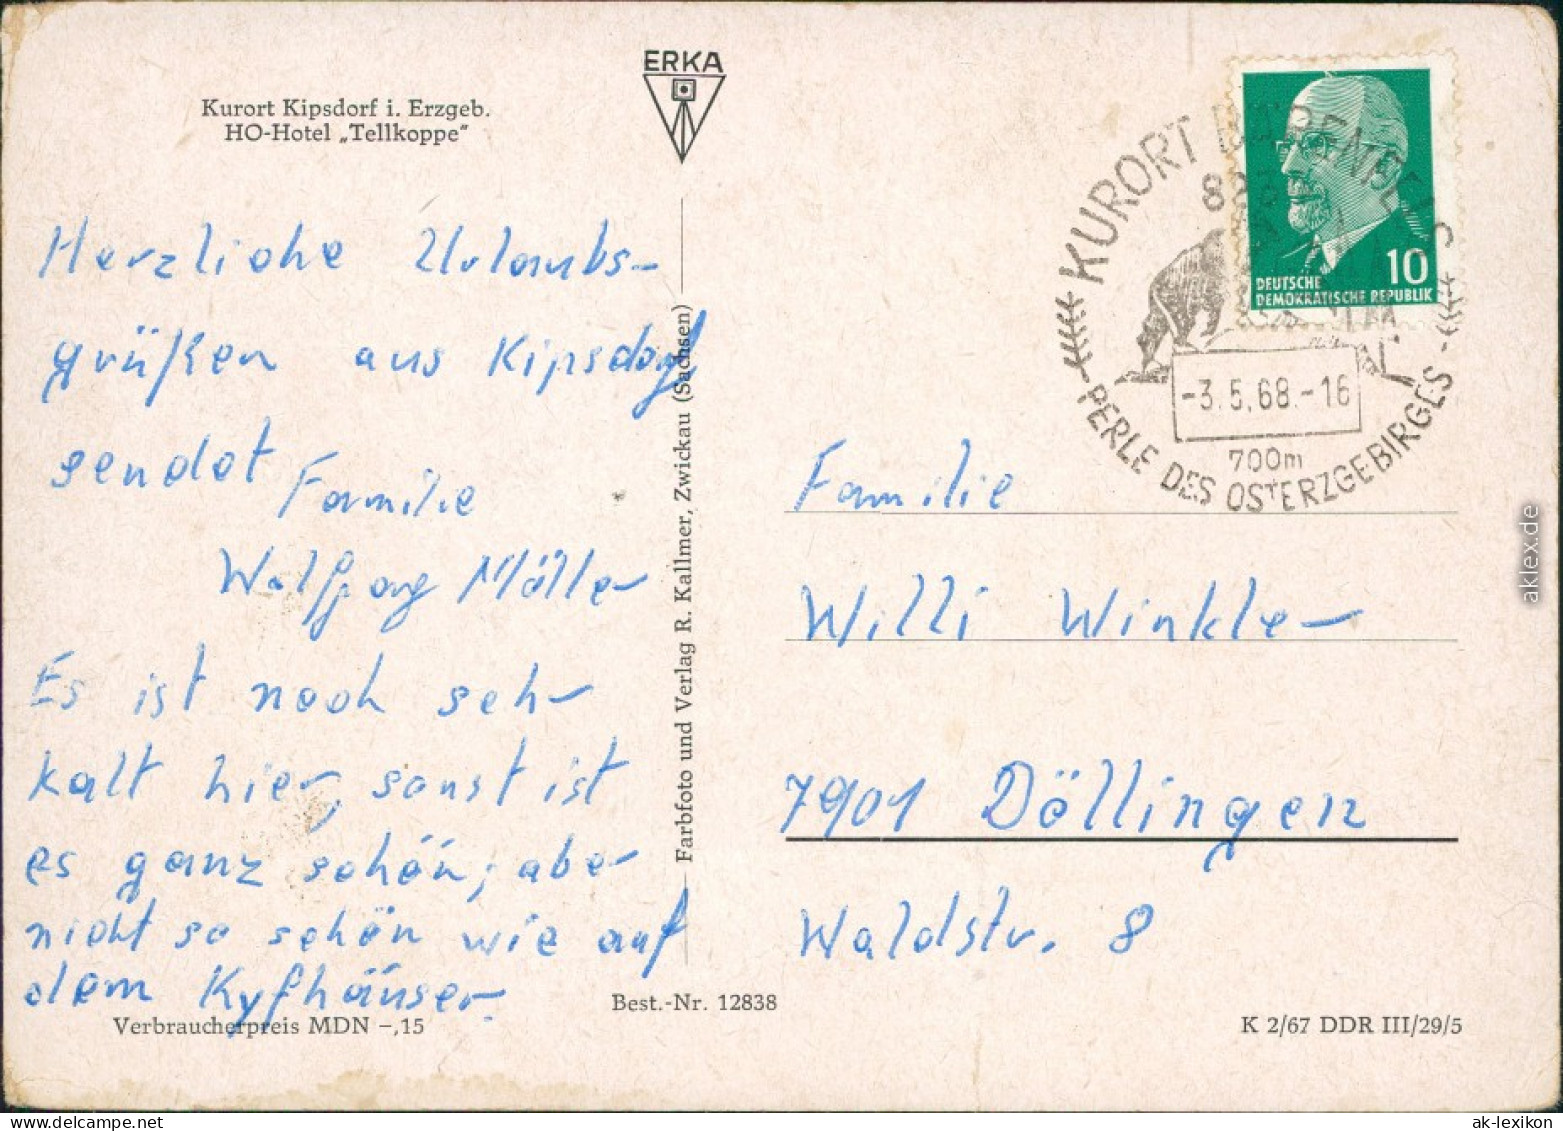 Kurort Kipsdorf i. Erzgeb.
HO-Hotel „Tellkoppe“
ERKA
Herzliche Urlaubs-
grüßen aus Kipsdorf
sendet Familie
Wolfgang Möller
Es ist noch sehr
kalt hier, sonst ist
es ganz schön, aber
nicht so schön wie auf
dem Kyfhäuser.
Verbraucherpreis MDN –,15
Best.-Nr. 12838
Farbfoto und Verlag R. Kallmer, Zwickau (Sachsen)
DEUTSCHE
DEMOKRATISCHE REPUBLIK
10
KURORT BÄRENFELS
-3.5.68.-16
700m
PERLE DES OSTERZGEBIRGES
Familie
Willi Winkler
7901 Döllingen
Waldstr. 8
K 2/67 DDR III/29/5
aklex.de
ak-lexikon